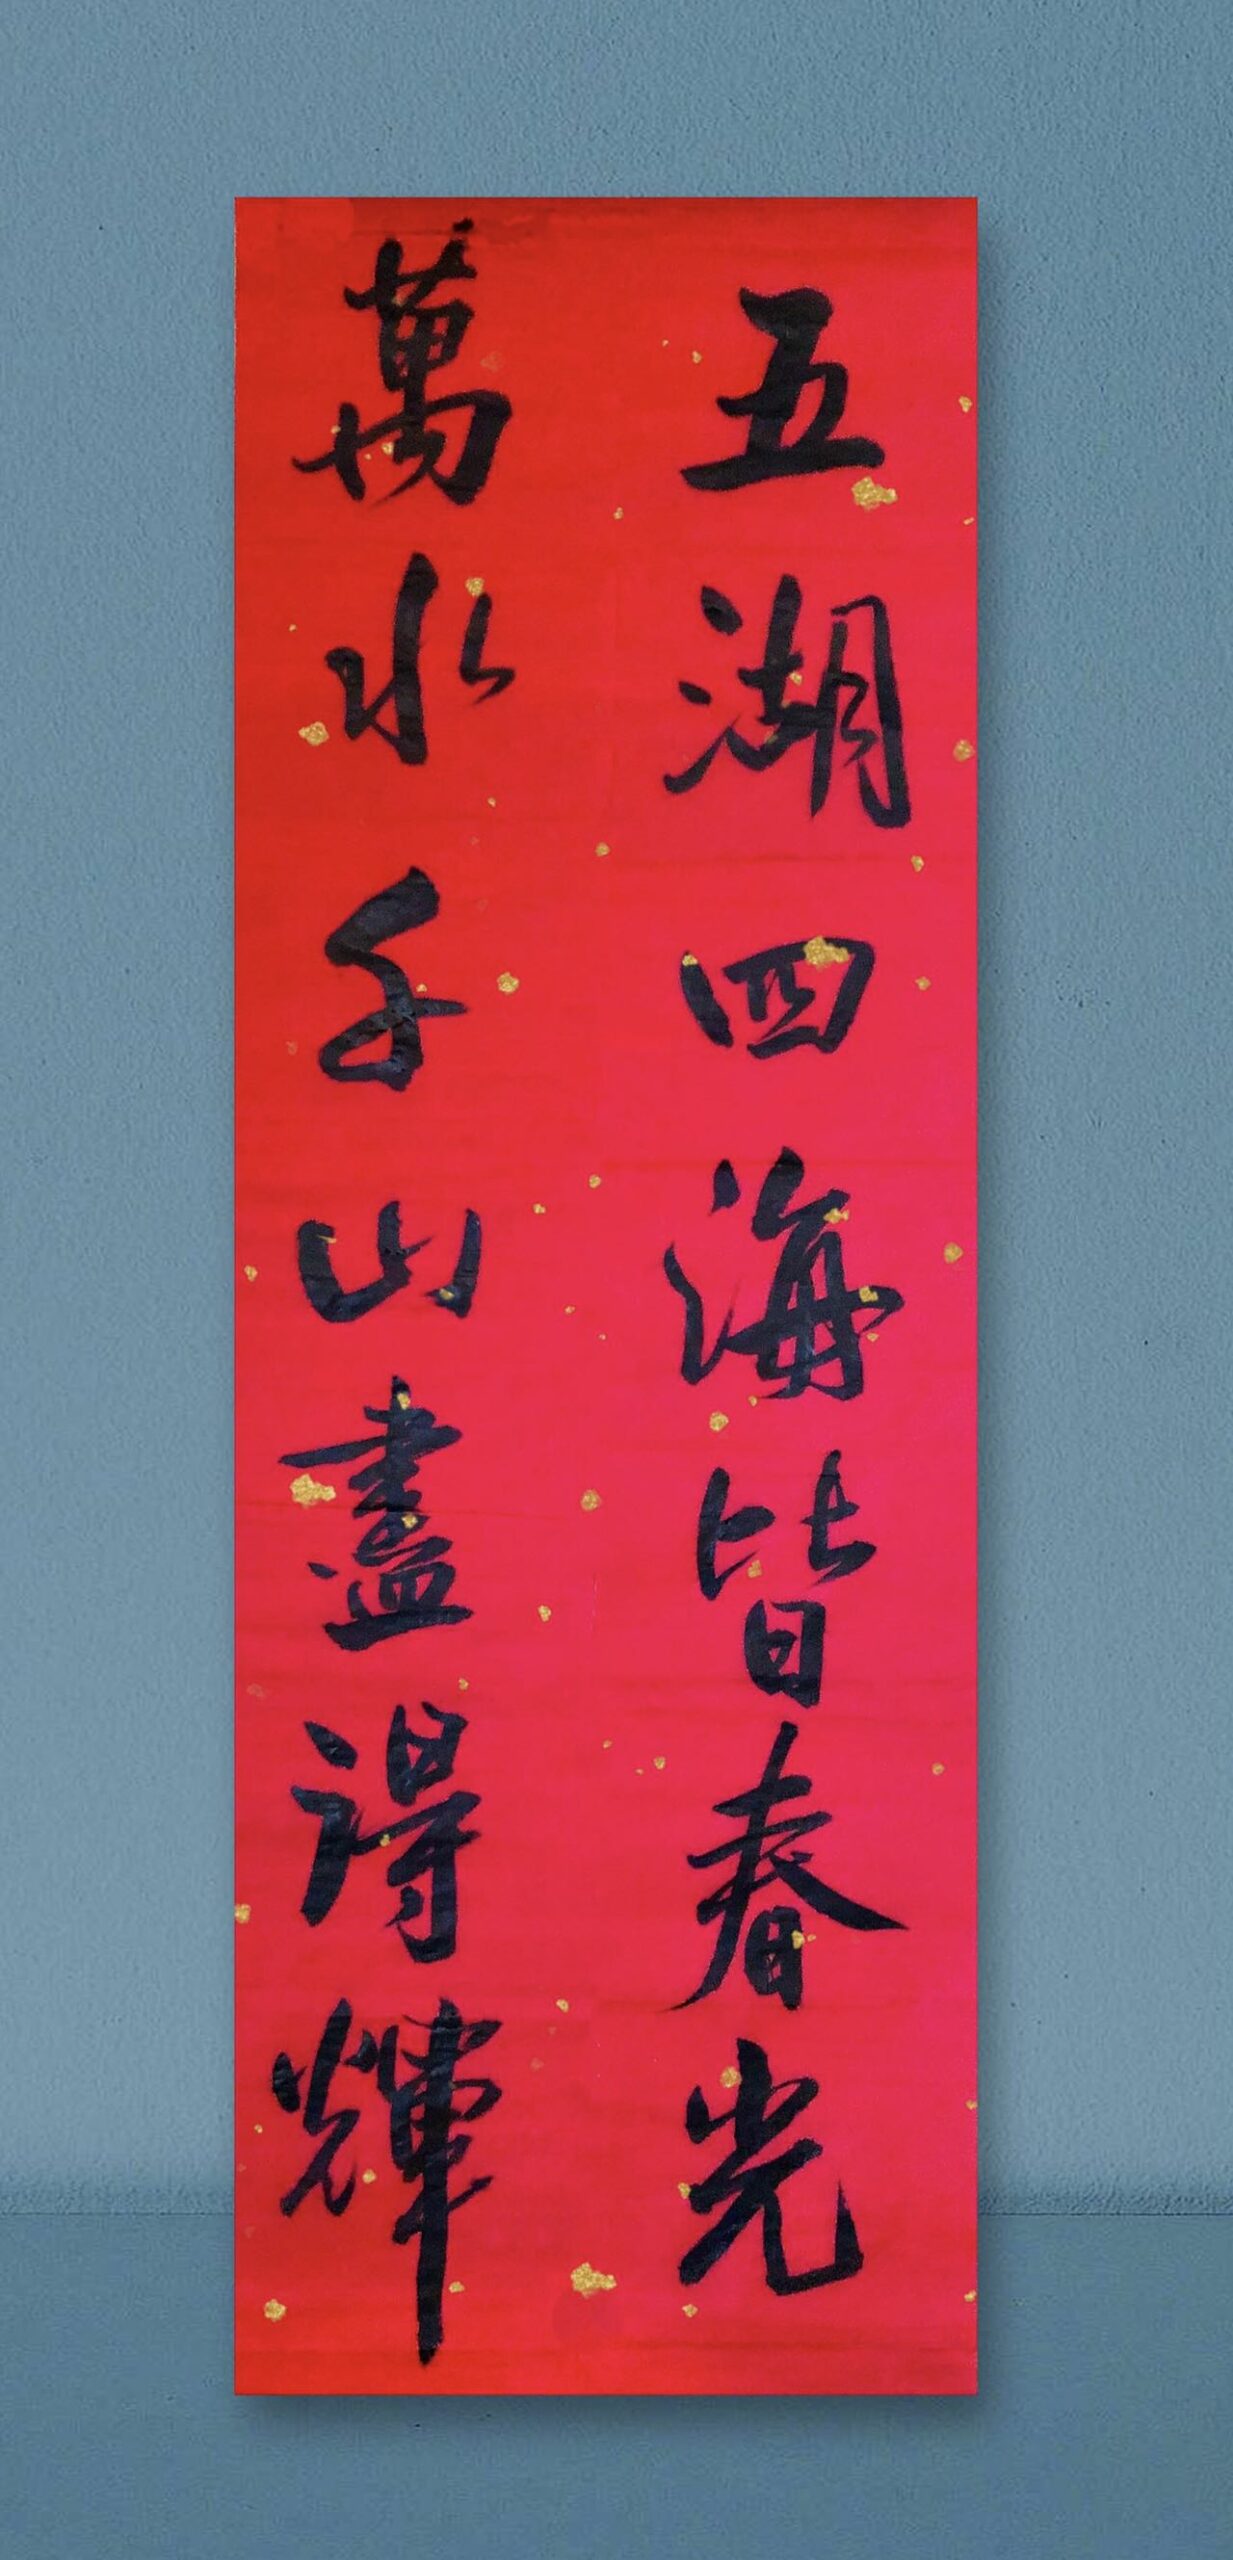 五湖四海皆春光
萬水千山盡得輝